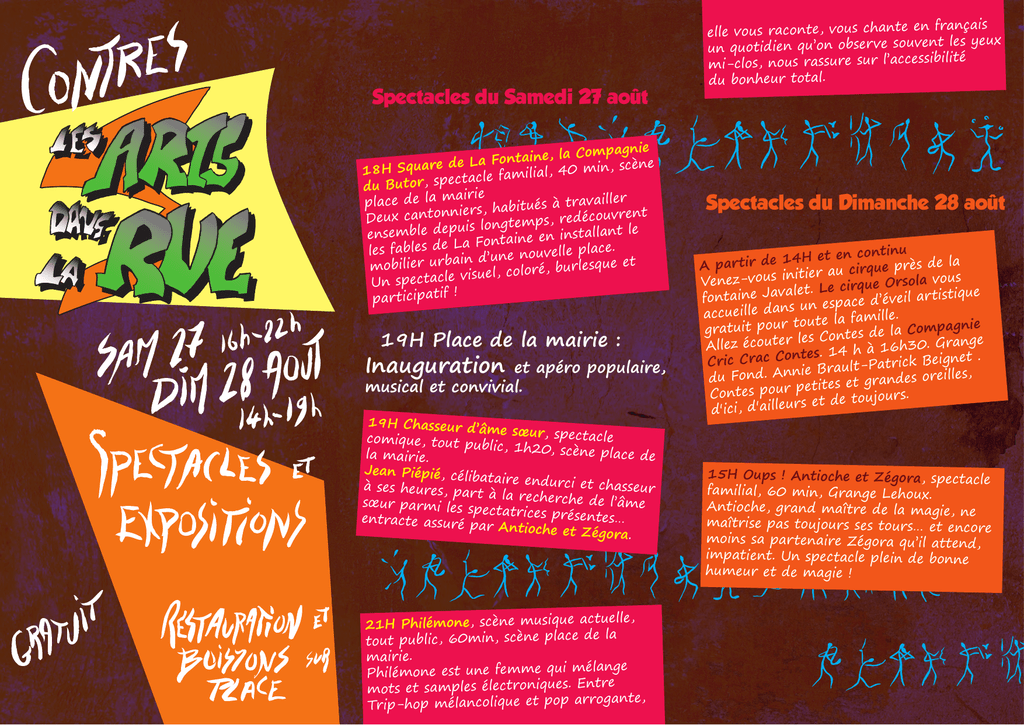 CONTRES
LES ARTS
DANS
LA RUE
SAM 27 16h-22h
DIM 28 AOUT
14h-19h
SPECTACLES ET
EXPOSITIONS
GRATUIT
RESTAURATION ET
BOISSONS SUR
PLACE
Spectacles du Samedi 27 août
18H Square de La Fontaine, la Compagnie
du Butor, spectacle familial, 40 min, scène
place de la mairie
Deux cantonniers, habitués à travailler
ensemble depuis longtemps, redécouvrent
les fables de La Fontaine en installant le
mobilier urbain d'une nouvelle place.
Un spectacle visuel, coloré, burlesque et
participatif !
19H Place de la mairie :
Inauguration et apéro populaire,
musical et convivial.
19H Chasseur d'âme sœur, spectacle
comique, tout public, 1h20, scène place de
la mairie.
Jean Piépié, célibataire endurci et chasseur
à ses heures, part à la recherche de l'âme
sœur parmi les spectatrices présentes...
entracte assuré par Antioche et Zégora.
21H Philémone, scène musique actuelle,
tout public, 60min, scène place de la
mairie.
Philémone est une femme qui mélange
mots et samples électroniques. Entre
Trip-hop mélancolique et pop arrogante,
elle vous raconte, vous chante en français
un quotidien qu'on observe souvent les yeux
mi-clos, nous rassure sur l'accessibilité
du bonheur total.
Spectacles du Dimanche 28 août
A partir de 14H et en continu
Venez-vous initier au cirque près de la
fontaine Javalet. Le cirque Orsola vous
accueille dans un espace d'éveil artistique
gratuit pour toute la famille.
Allez écouter les Contes de la Compagnie
Cric Crac Contes. 14 h à 16h30. Grange
du Fond. Annie Brault-Patrick Beignet .
Contes pour petites et grandes oreilles,
d'ici, d'ailleurs et de toujours.
15H Oups ! Antioche et Zégora, spectacle
familial, 60 min, Grange Lehoux.
Antioche, grand maître de la magie, ne
maîtrise pas toujours ses tours... et encore
moins sa partenaire Zégora qu'il attend,
impatient. Un spectacle plein de bonne
humeur et de magie !